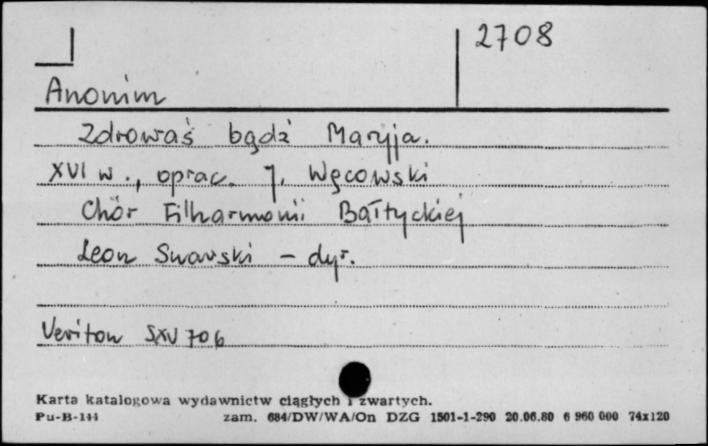 2708
Anonim
Zdrowaś bądź Maryja.
XVI w., oprac. J. Węcowski
Chór Filharmonii Bałtyckiej
Leon Snarski – dyr.
Veriton SXV 706
Karta katalogowa wydawnictw ciągłych i zwartych.
Pu-B-144 zam. 684/DW/WA/On DZG 1501-1-290 20.06.80 6 960 000 74x120